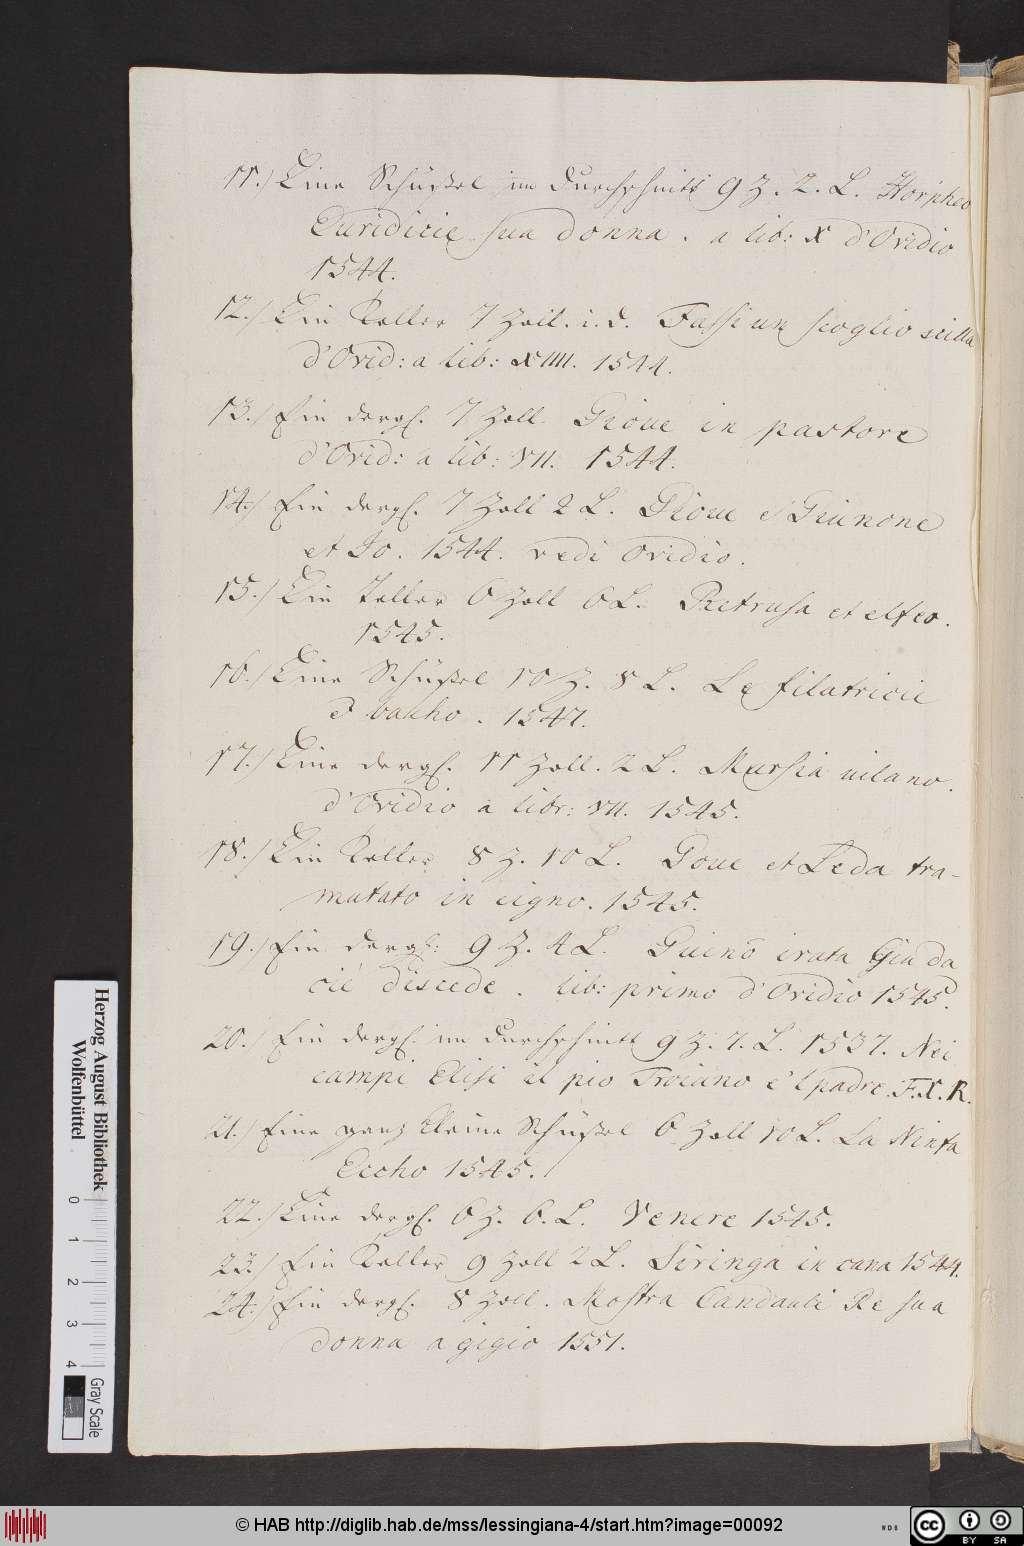 11.) Eine Schüßel im durchschnitt 9 Z. 2. L. Horpheo
Euridicie sua donna. a lib: X d'Ovidio
1544.
12.) Ein Teller 7 Zoll. i. d. Fassi un scoglio scilla
d'Ovid: a lib: XIIII. 1544.
13.) Ein dergl. 7 Zoll. Giove in pastore
d'Ovid: a lib: VII. 1544.
14.) Ein dergl. 7 Zoll 2 L. Gioue e Giunone
et Io. 1544. vedi Ovidio.
15.) Ein Teller 6 Zoll 6 L. Retrusa et elfeo.
1545.
16.) Eine Schüßel 10 Z. 8 L. Le filatricie
e bakho. 1547.
17.) Eine dergl. 11 Zoll. 2 L. Marsia uilano.
d'Ovidio a libr: VII. 1545.
18.) Ein Teller 8 Z. 10 L. Goue et Leda tra-
mutato in cigno. 1545.
19.) Ein dergl: 9 Z. 4 L. Guinō irata Giu da
cié discede. lib: primo d'Ovidio 1545.
20.) Ein dergl. im durchschnitt 9 Z. 7. L. 1537. Nei
campi Elisi il pio Troiano e'l padre. F. X. R.
21.) Eine ganz kleine Schüßel 6 Zoll 10 L. La Ninfa
Eccho 1545.
22.) Eine dergl. 6 Z. 6. L. Venere 1545.
23.) Ein Teller 9 Zoll 2 L. Siringa in cana 1544.
24.) Ein dergl. 8 Zoll. Mostra Candauli Re sua
donna a gigio 1551.
Herzog August Bibliothek
Wolfenbüttel
0 1 2 3 4
Gray Scale
© HAB http://diglib.hab.de/mss/lessingiana-4/start.htm?image=00092
cc BY SA